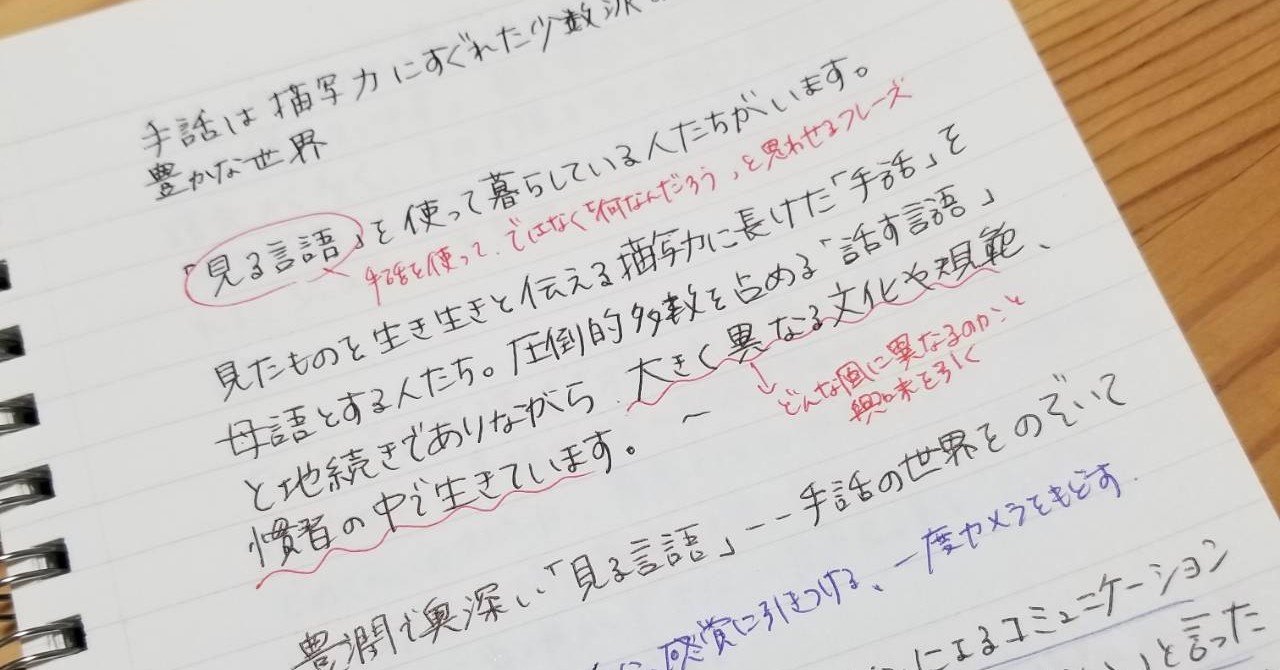 手話は描写力にすぐれた少数派
豊かな世界
「見る言語」を使って暮らしている人たちがいます。
手話を使って、ではなく「何なんだろう」と思わせるフレーズ
見たものを生き生きと伝える描写力に長けた「手話」を
母語とする人たち。圧倒的多数を占める「話す言語」
と地続きでありながら、大きく異なる文化や規範、
↓どんな風に異なるのかこと
興味を引く
慣習の中で生きています。 〜
豊潤で奥深い「見る言語」--手話の世界をのぞいて
感賞に引きつける、一度カメラをもどす.
によるコミュニケーション
」と言った